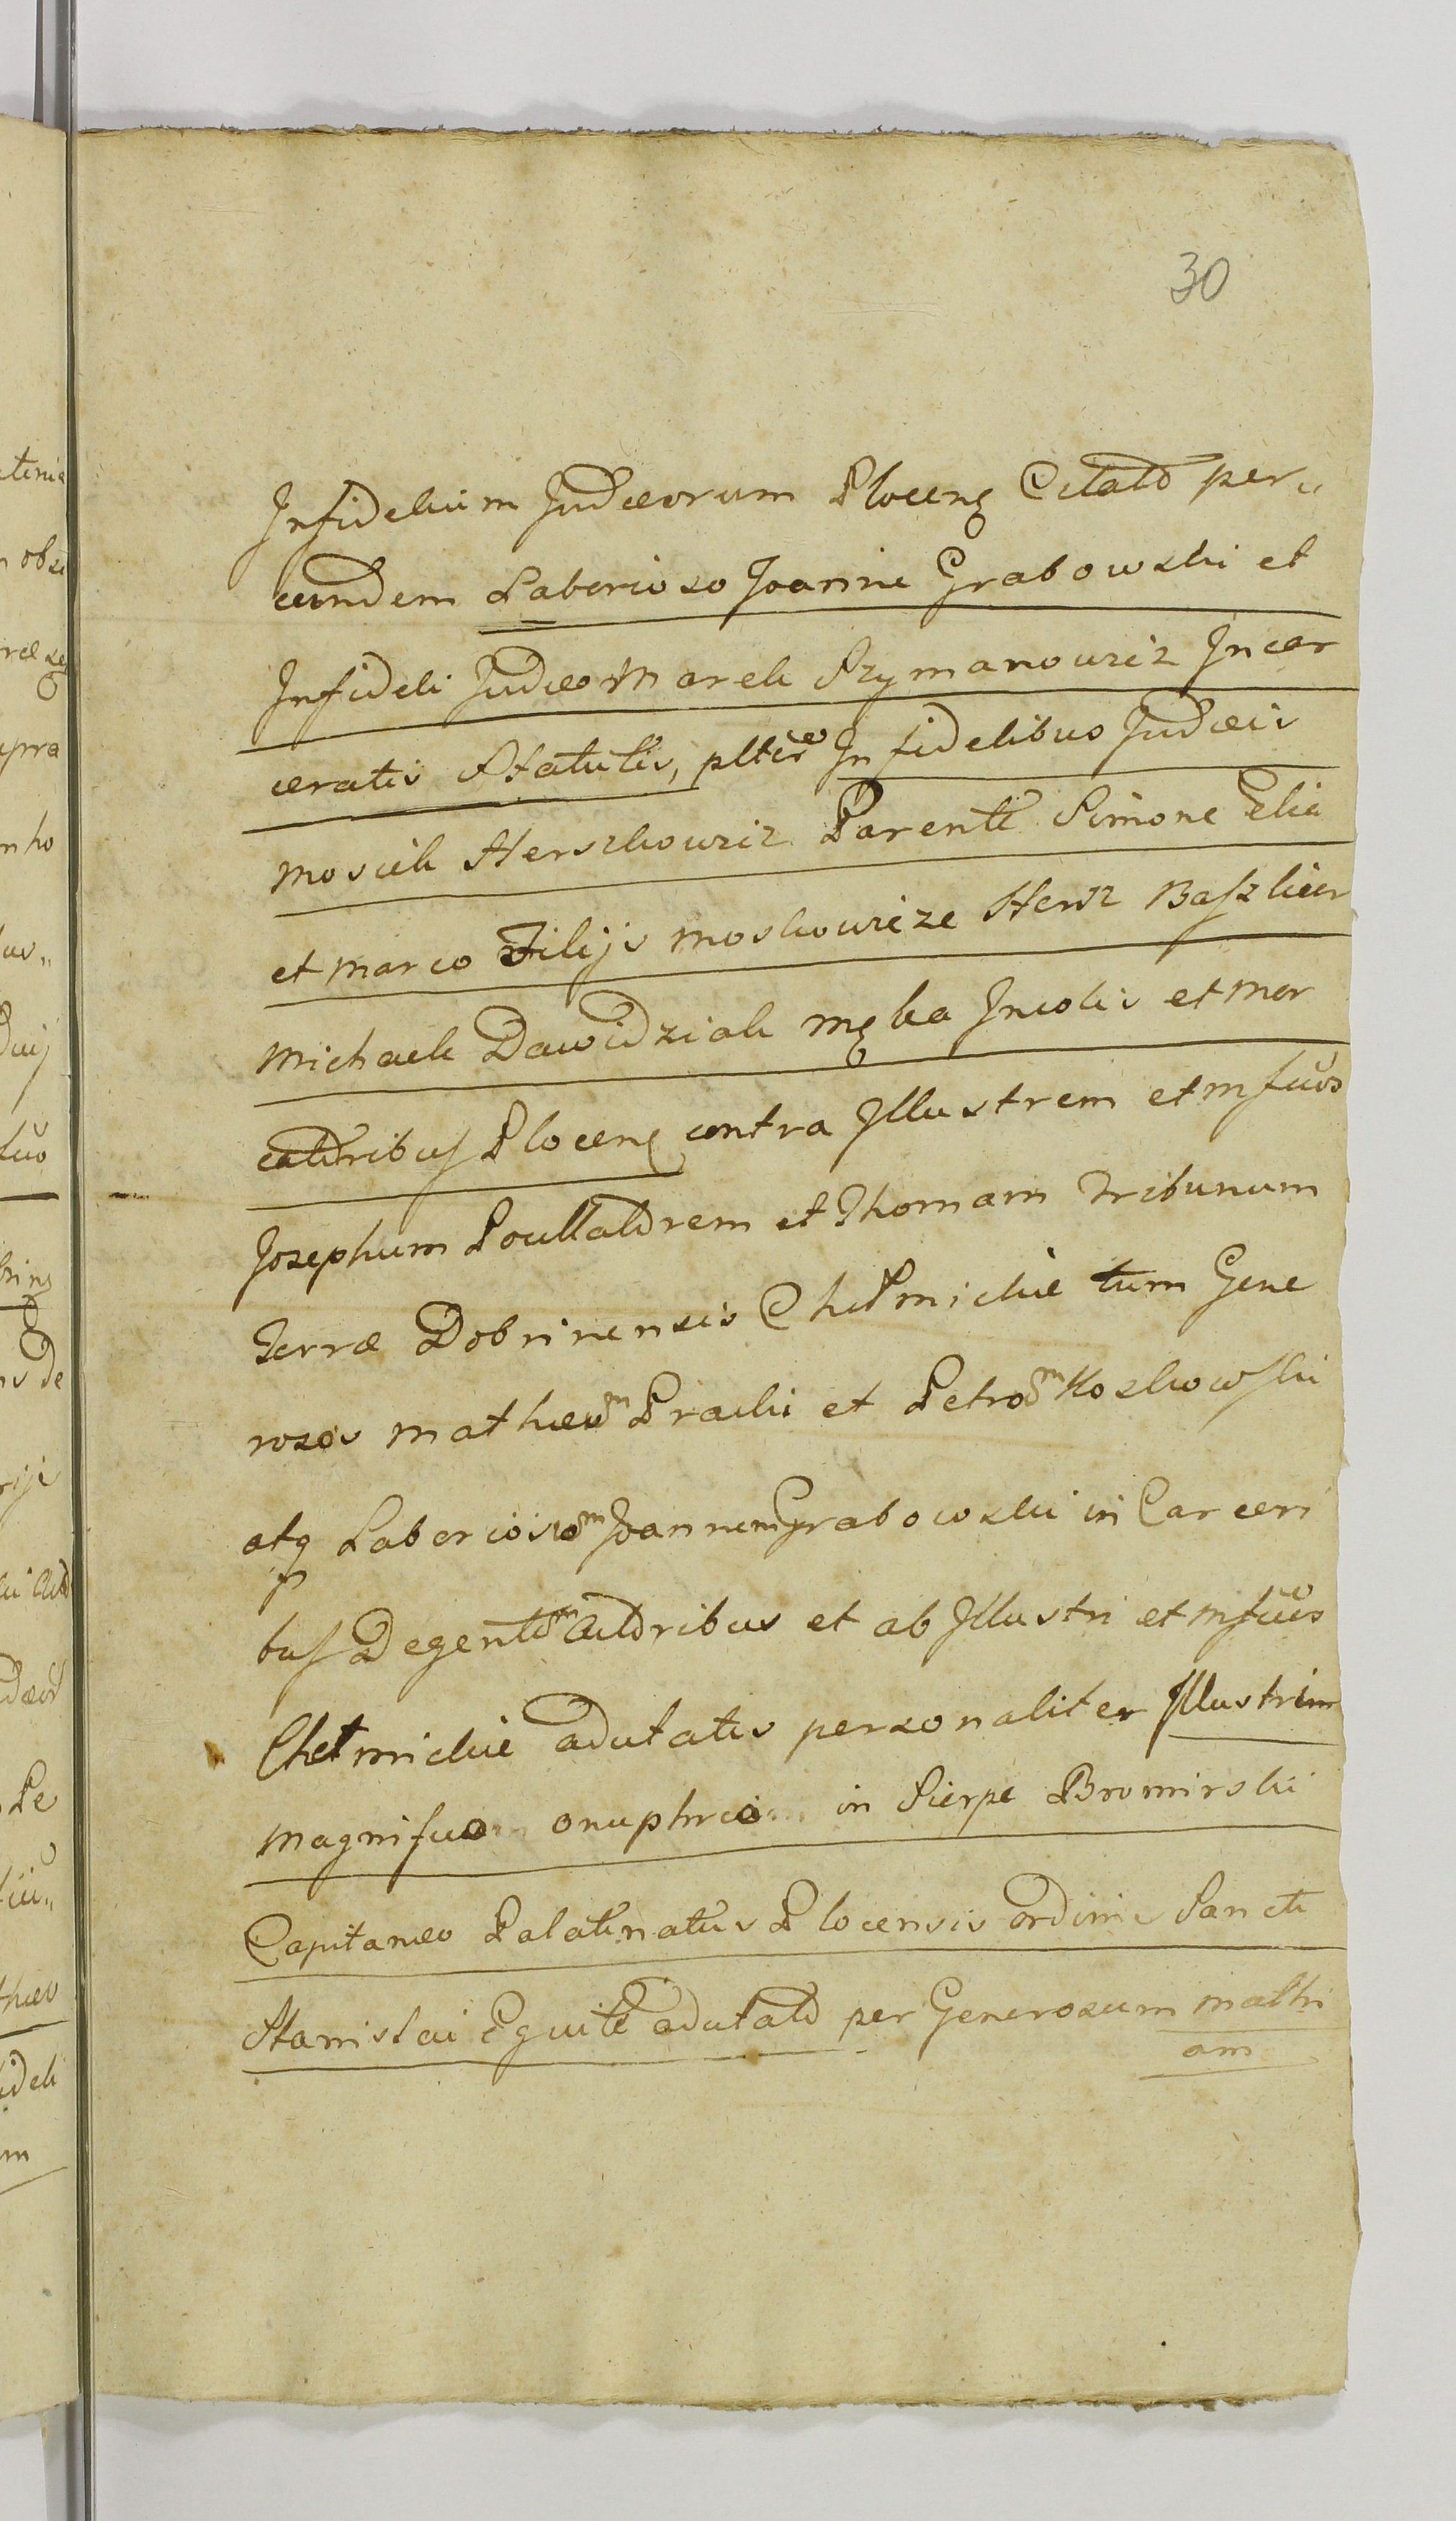 30
Infidelium Judæorum Plocens Citato per
eundem Laborioso Joanne Grabowski et
Infideli Judæo Marek Szymanowicz Incar
ceratis Statutis, Infidelibus Judæis
Mosiek Herszkowicz Parente Simone Elia
et Marco Filijs Moskowicze Hersz Baszkier
Michaele Dawidziak Męka Incolis et Mer
catoribus Plocens contra Illustrem et Mficos
Josephum Pocillatorem et Thomam Tribunum
Terræ Dobrinensis Chełmickie tum Gene
rosos Mathæum Pracki et Petrum Koskowski
atq Laboriosum Joannem Grabowski in Carceri
bus Degentem Actoribus et ab Illustri et Mficis
Chełmickie adcitatis personaliter Illustri
Magnifico Onuphrio in Sierpc Bromirski
Capitaneo Palatinatus Plocensis Ordinis Sancti
Stanislai Equite adcitato per Generosum Mathi
am